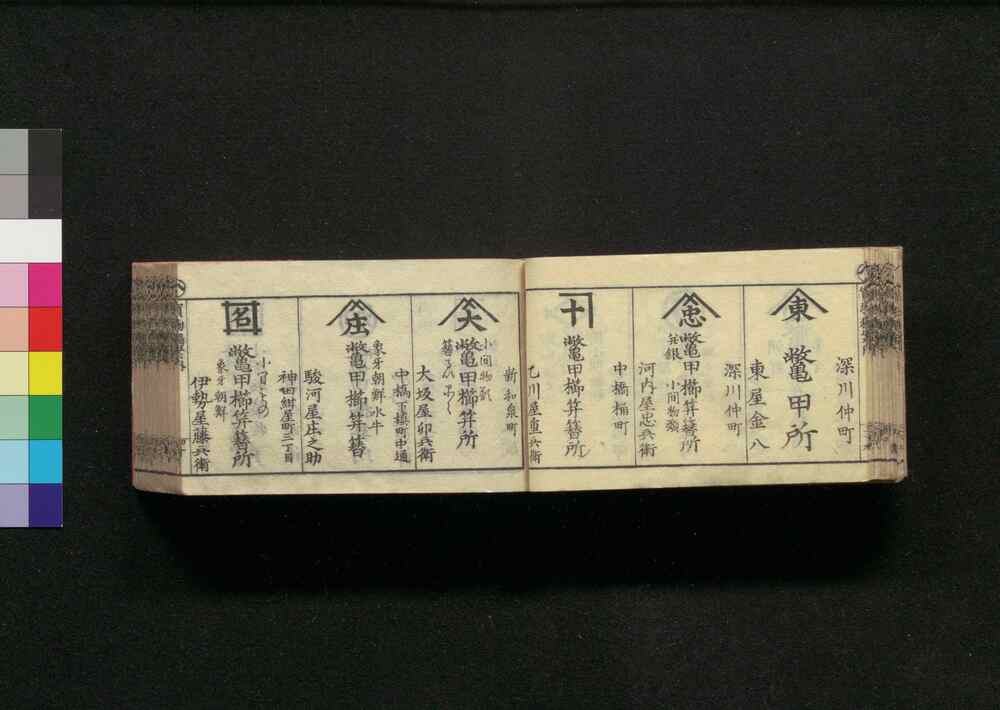 深川仲町
東
鼈甲所
東屋金八
深川仲町
忠
鼈甲櫛笄簪所
小間物類
河内屋忠兵衛
中橋桶町
十
鼈甲櫛笄簪所
乙川屋重兵衛
新和泉町
小間物類
大
鼈甲櫛笄所
大坂屋卯兵衛
中橋下槇町中通
象牙朝鮮水牛
庄
鼈甲櫛笄簪
駿河屋庄之助
神田紺屋町二丁目
小間もの
名
鼈甲櫛笄簪所
象牙朝鮮
伊勢屋藤兵衛